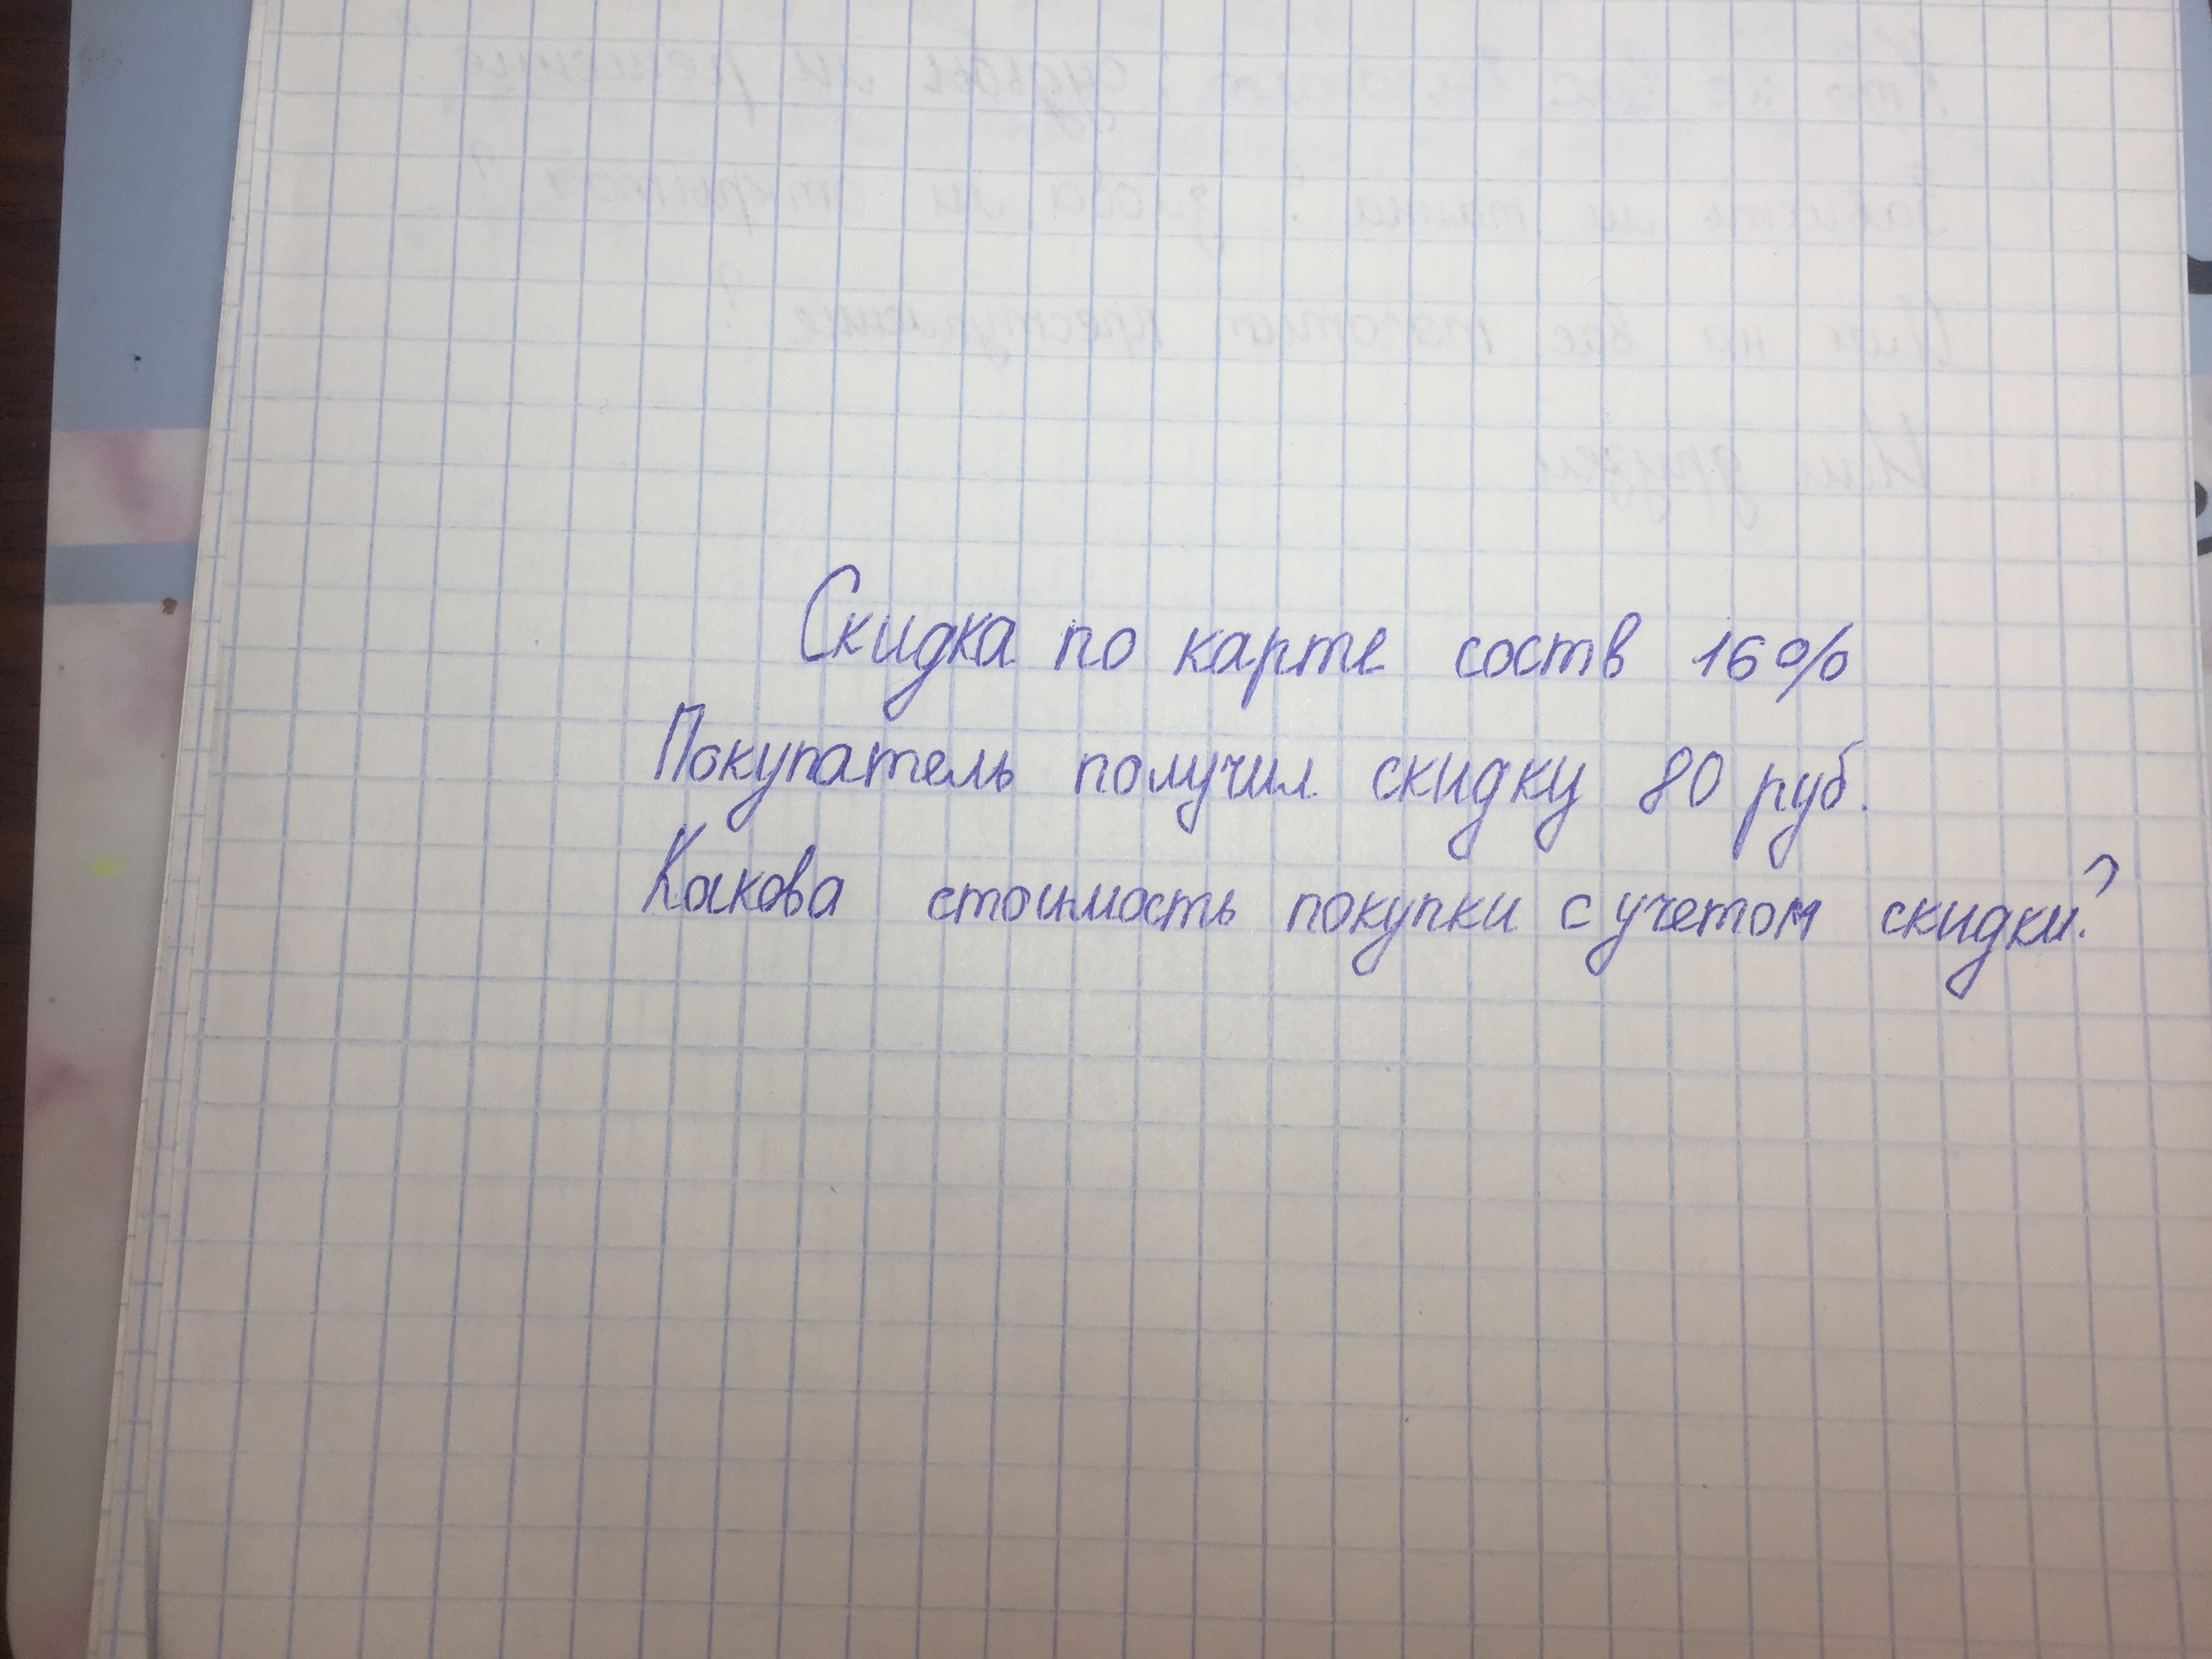 Скидка по карте соств 16%
Покупатель получил скидку 80 руб.
Какова стоимость покупки с учетом скидки?